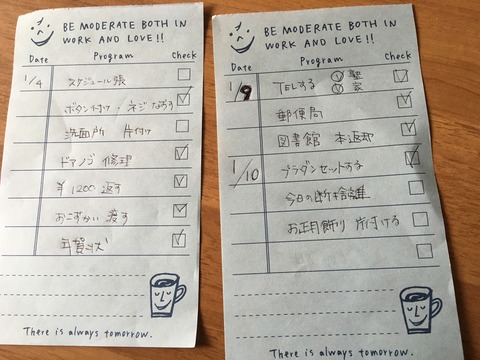 BE MODERATE BOTH IN
WORK AND LOVE!!
Date Program Check
1/4 スケジュール張
ボタン付け・ネジなおす
洗面所 片付け
ドアノブ 修理
¥1200 返す
おこずかい 渡す
年賀状
There is always tomorrow.
BE MODERATE BOTH IN
WORK AND LOVE!!
Date Program Check
1/9 TELする 塾
家
郵便局
図書館 本返却
1/10 プラダンセットする
今日の断捨離
お正月飾り 片付ける
There is always tomorrow.